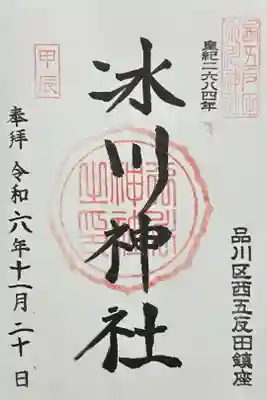 品川区西五反田鎮座
西五反田
氷川神社
皇紀二六八四年
冰川神社
甲辰
奉拝 令和六年十一月二十日